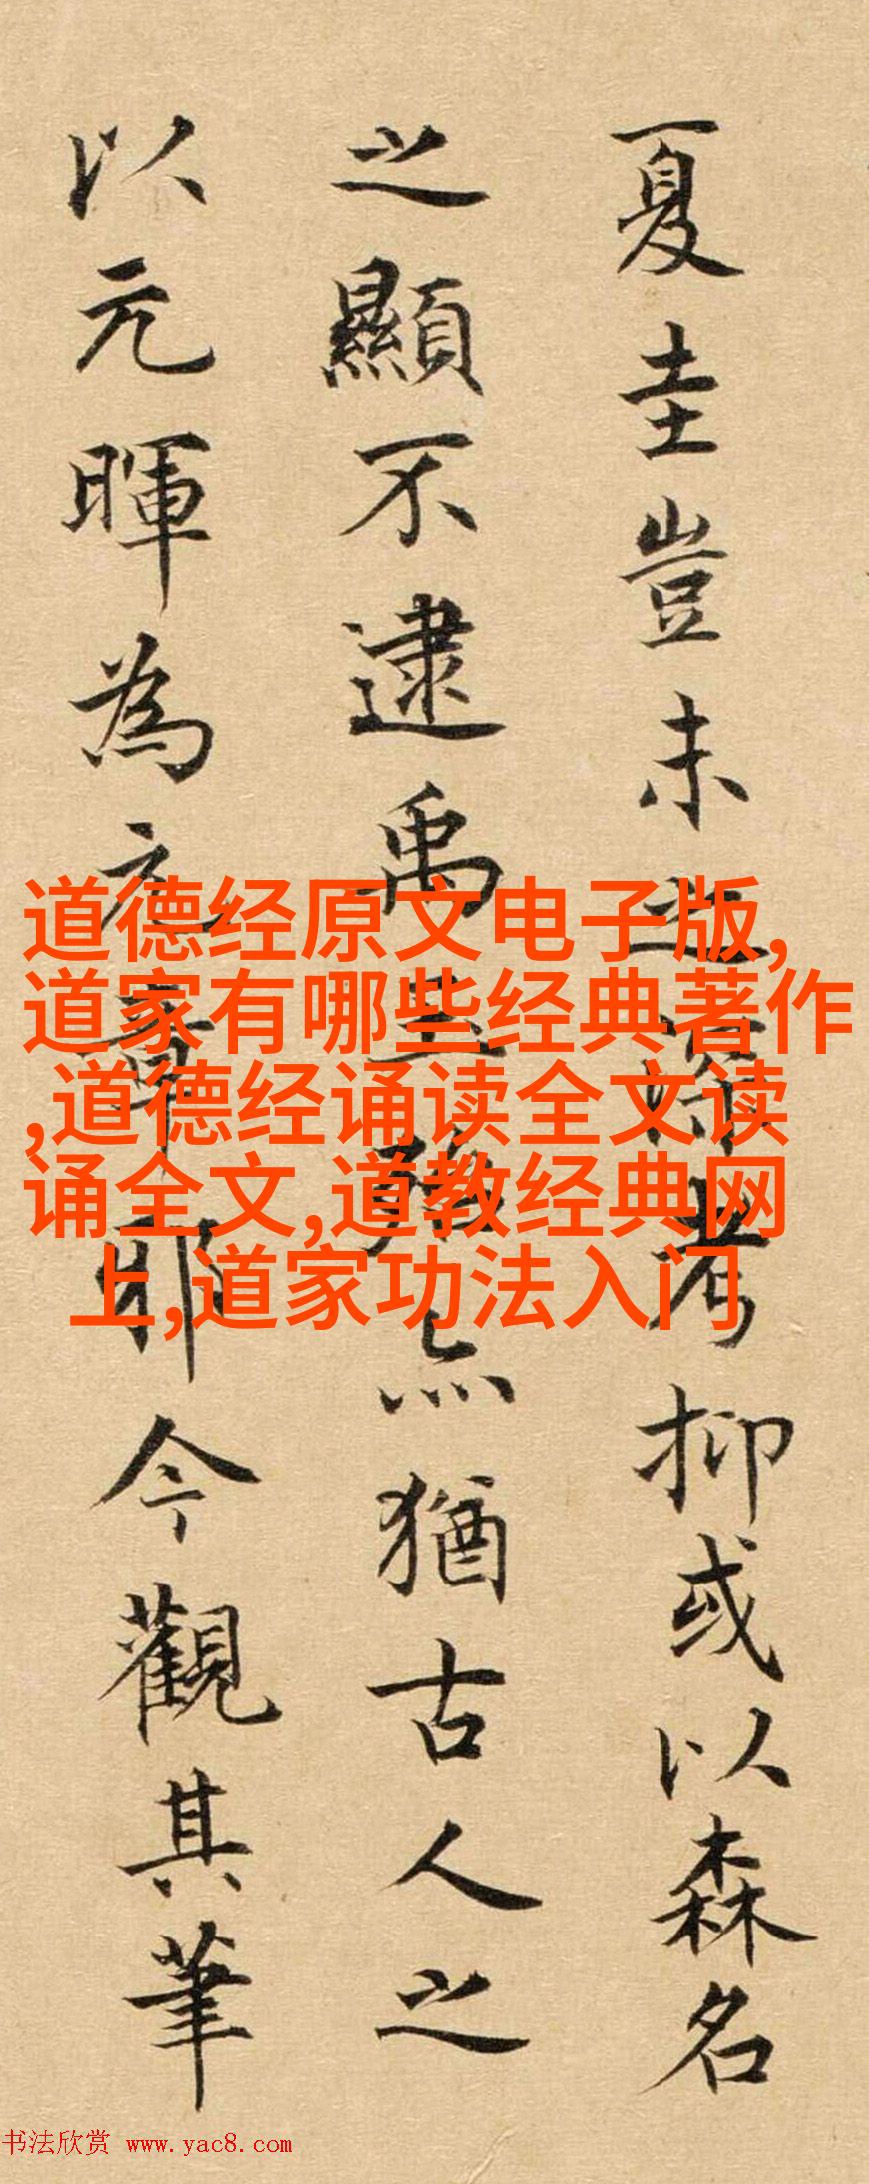 夏圭豈未之深考抑或以森名
之顯不逮禹亦猶古人之
以元暉為元章耶今觀其筆
道德经原文电子版,
道家有哪些经典著作
,道德经诵读全文读
诵全文,道教经典网
上,道家功法入门
书法欣赏 www.yac8.com